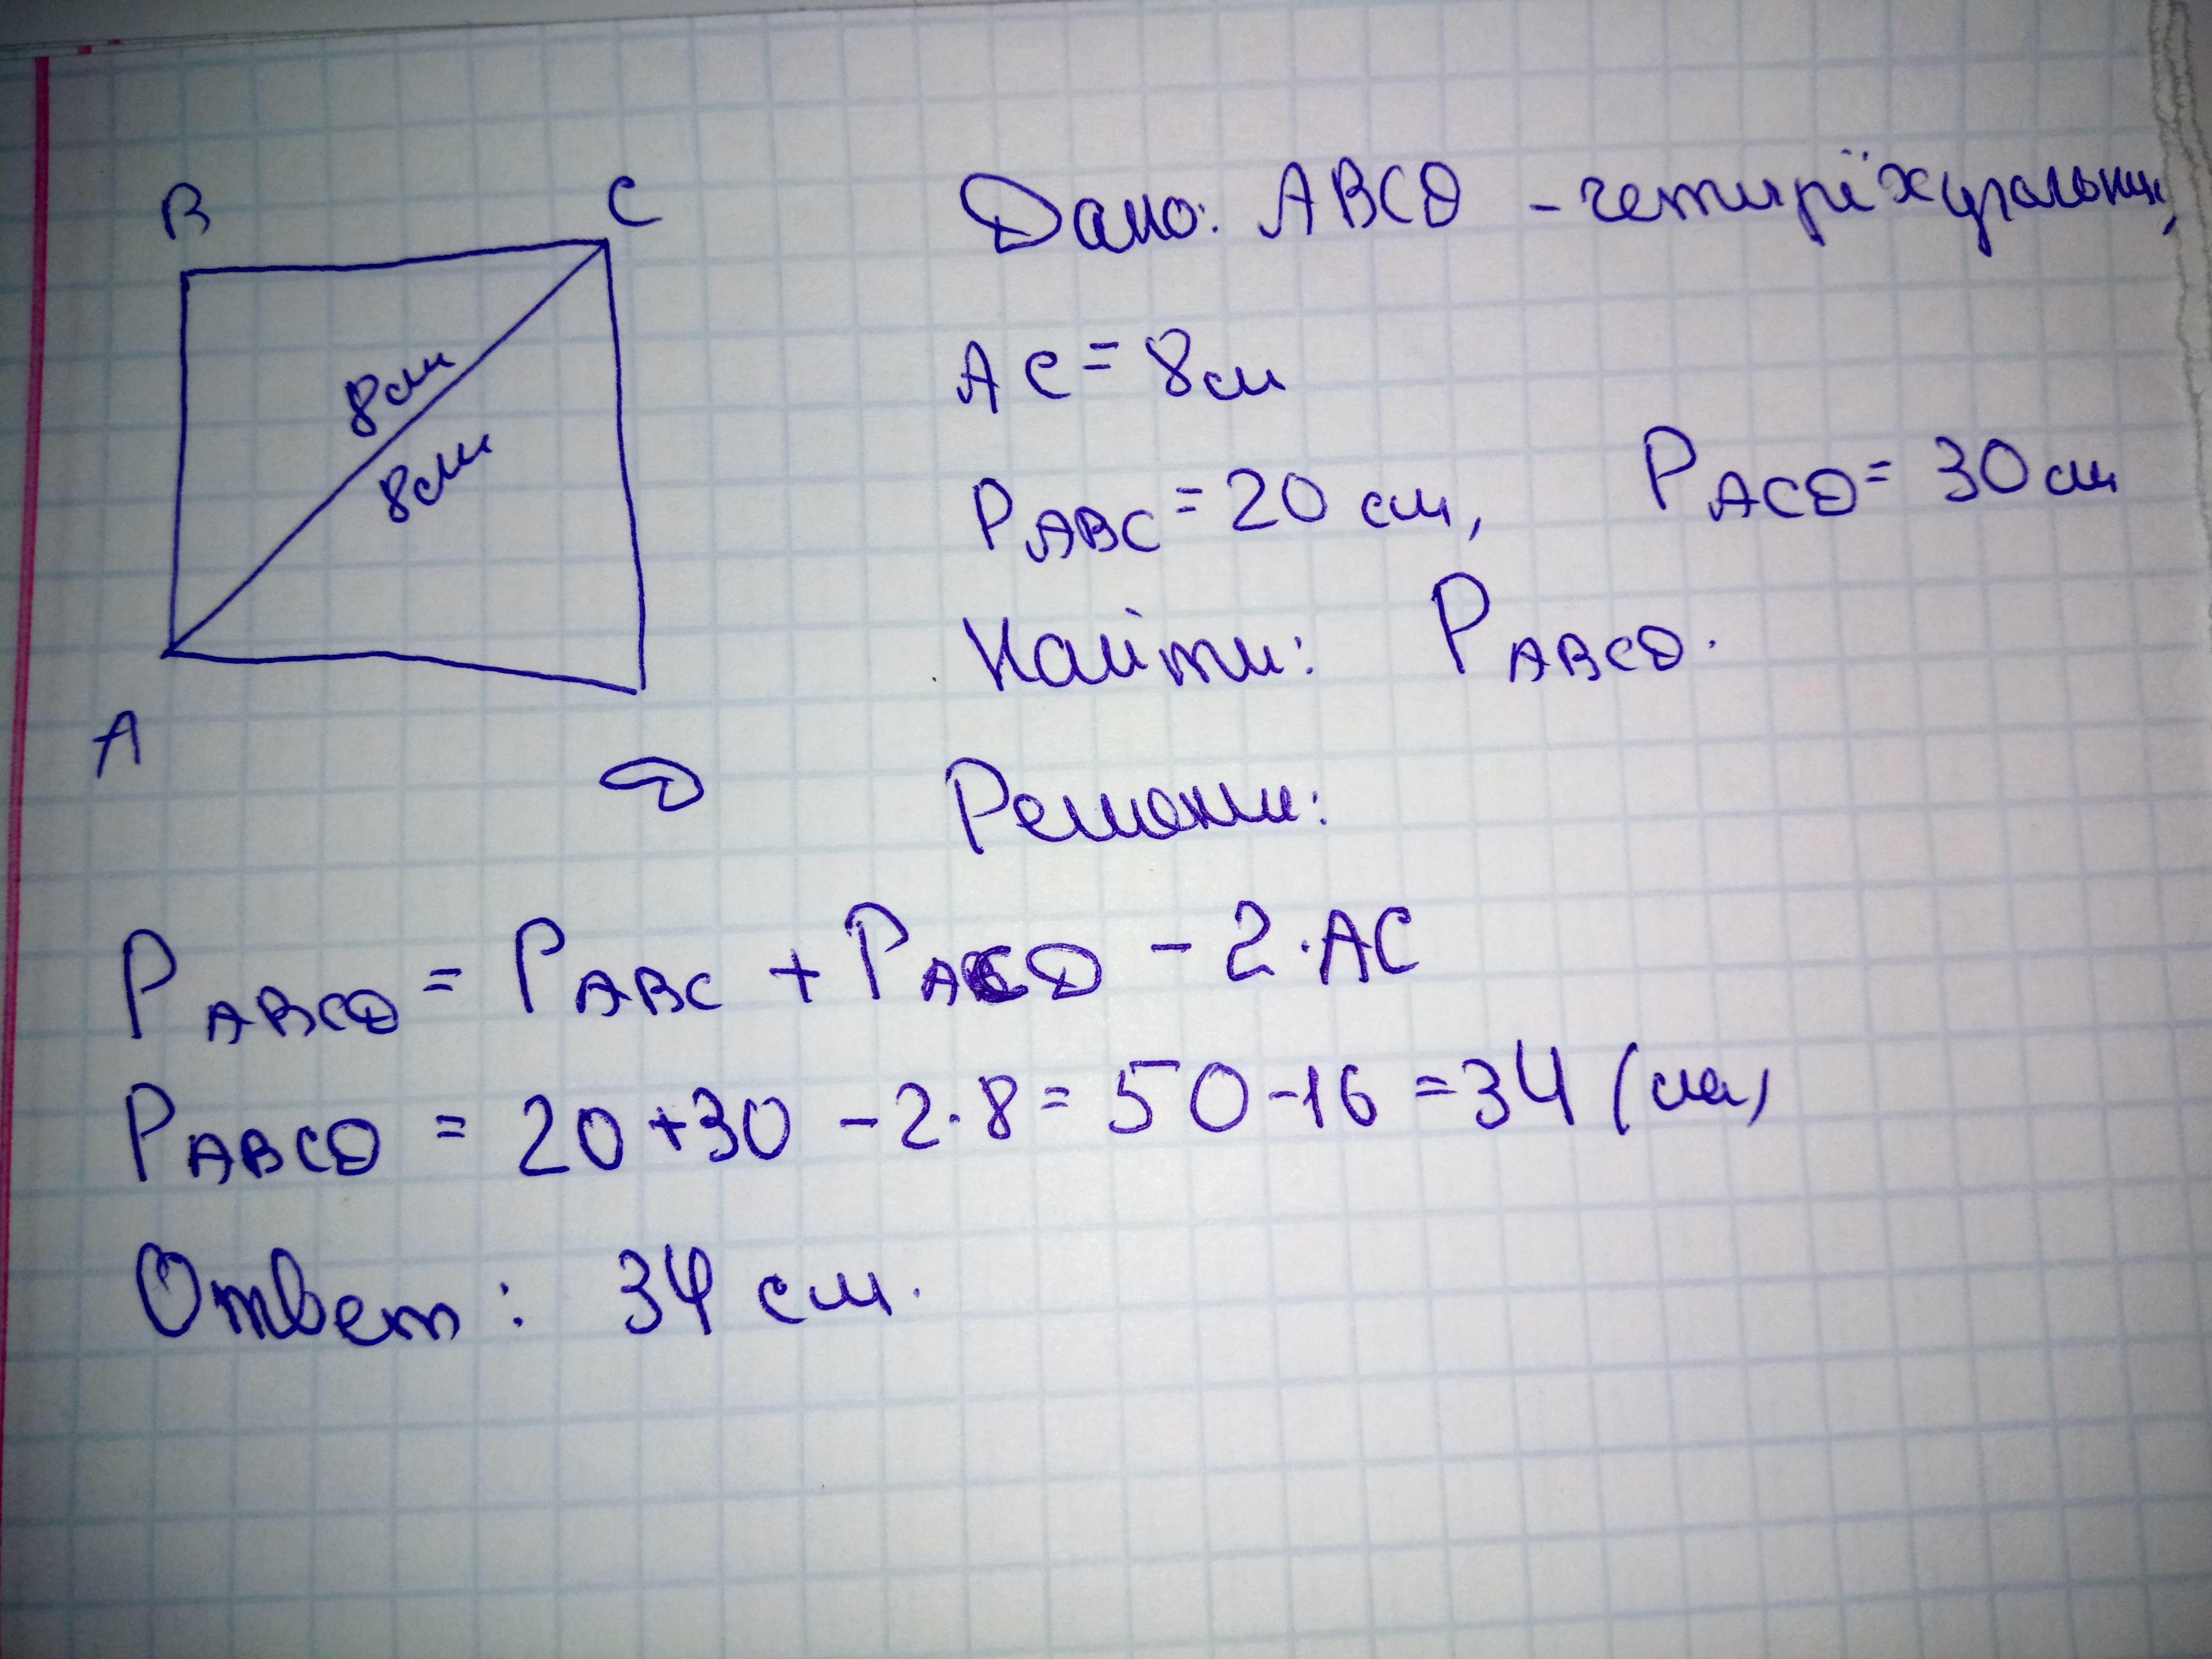 B
C
8см
8см
A
D
Дано: ABCD - четырёхугольник,
AC = 8см
PABC = 20 см, PACD = 30см
Найти: PABCD.
Решение:
PABCD = PABC + PACD - 2·AC
PABCD = 20+30 - 2·8 = 50-16 = 34 (см)
Ответ: 34 см.